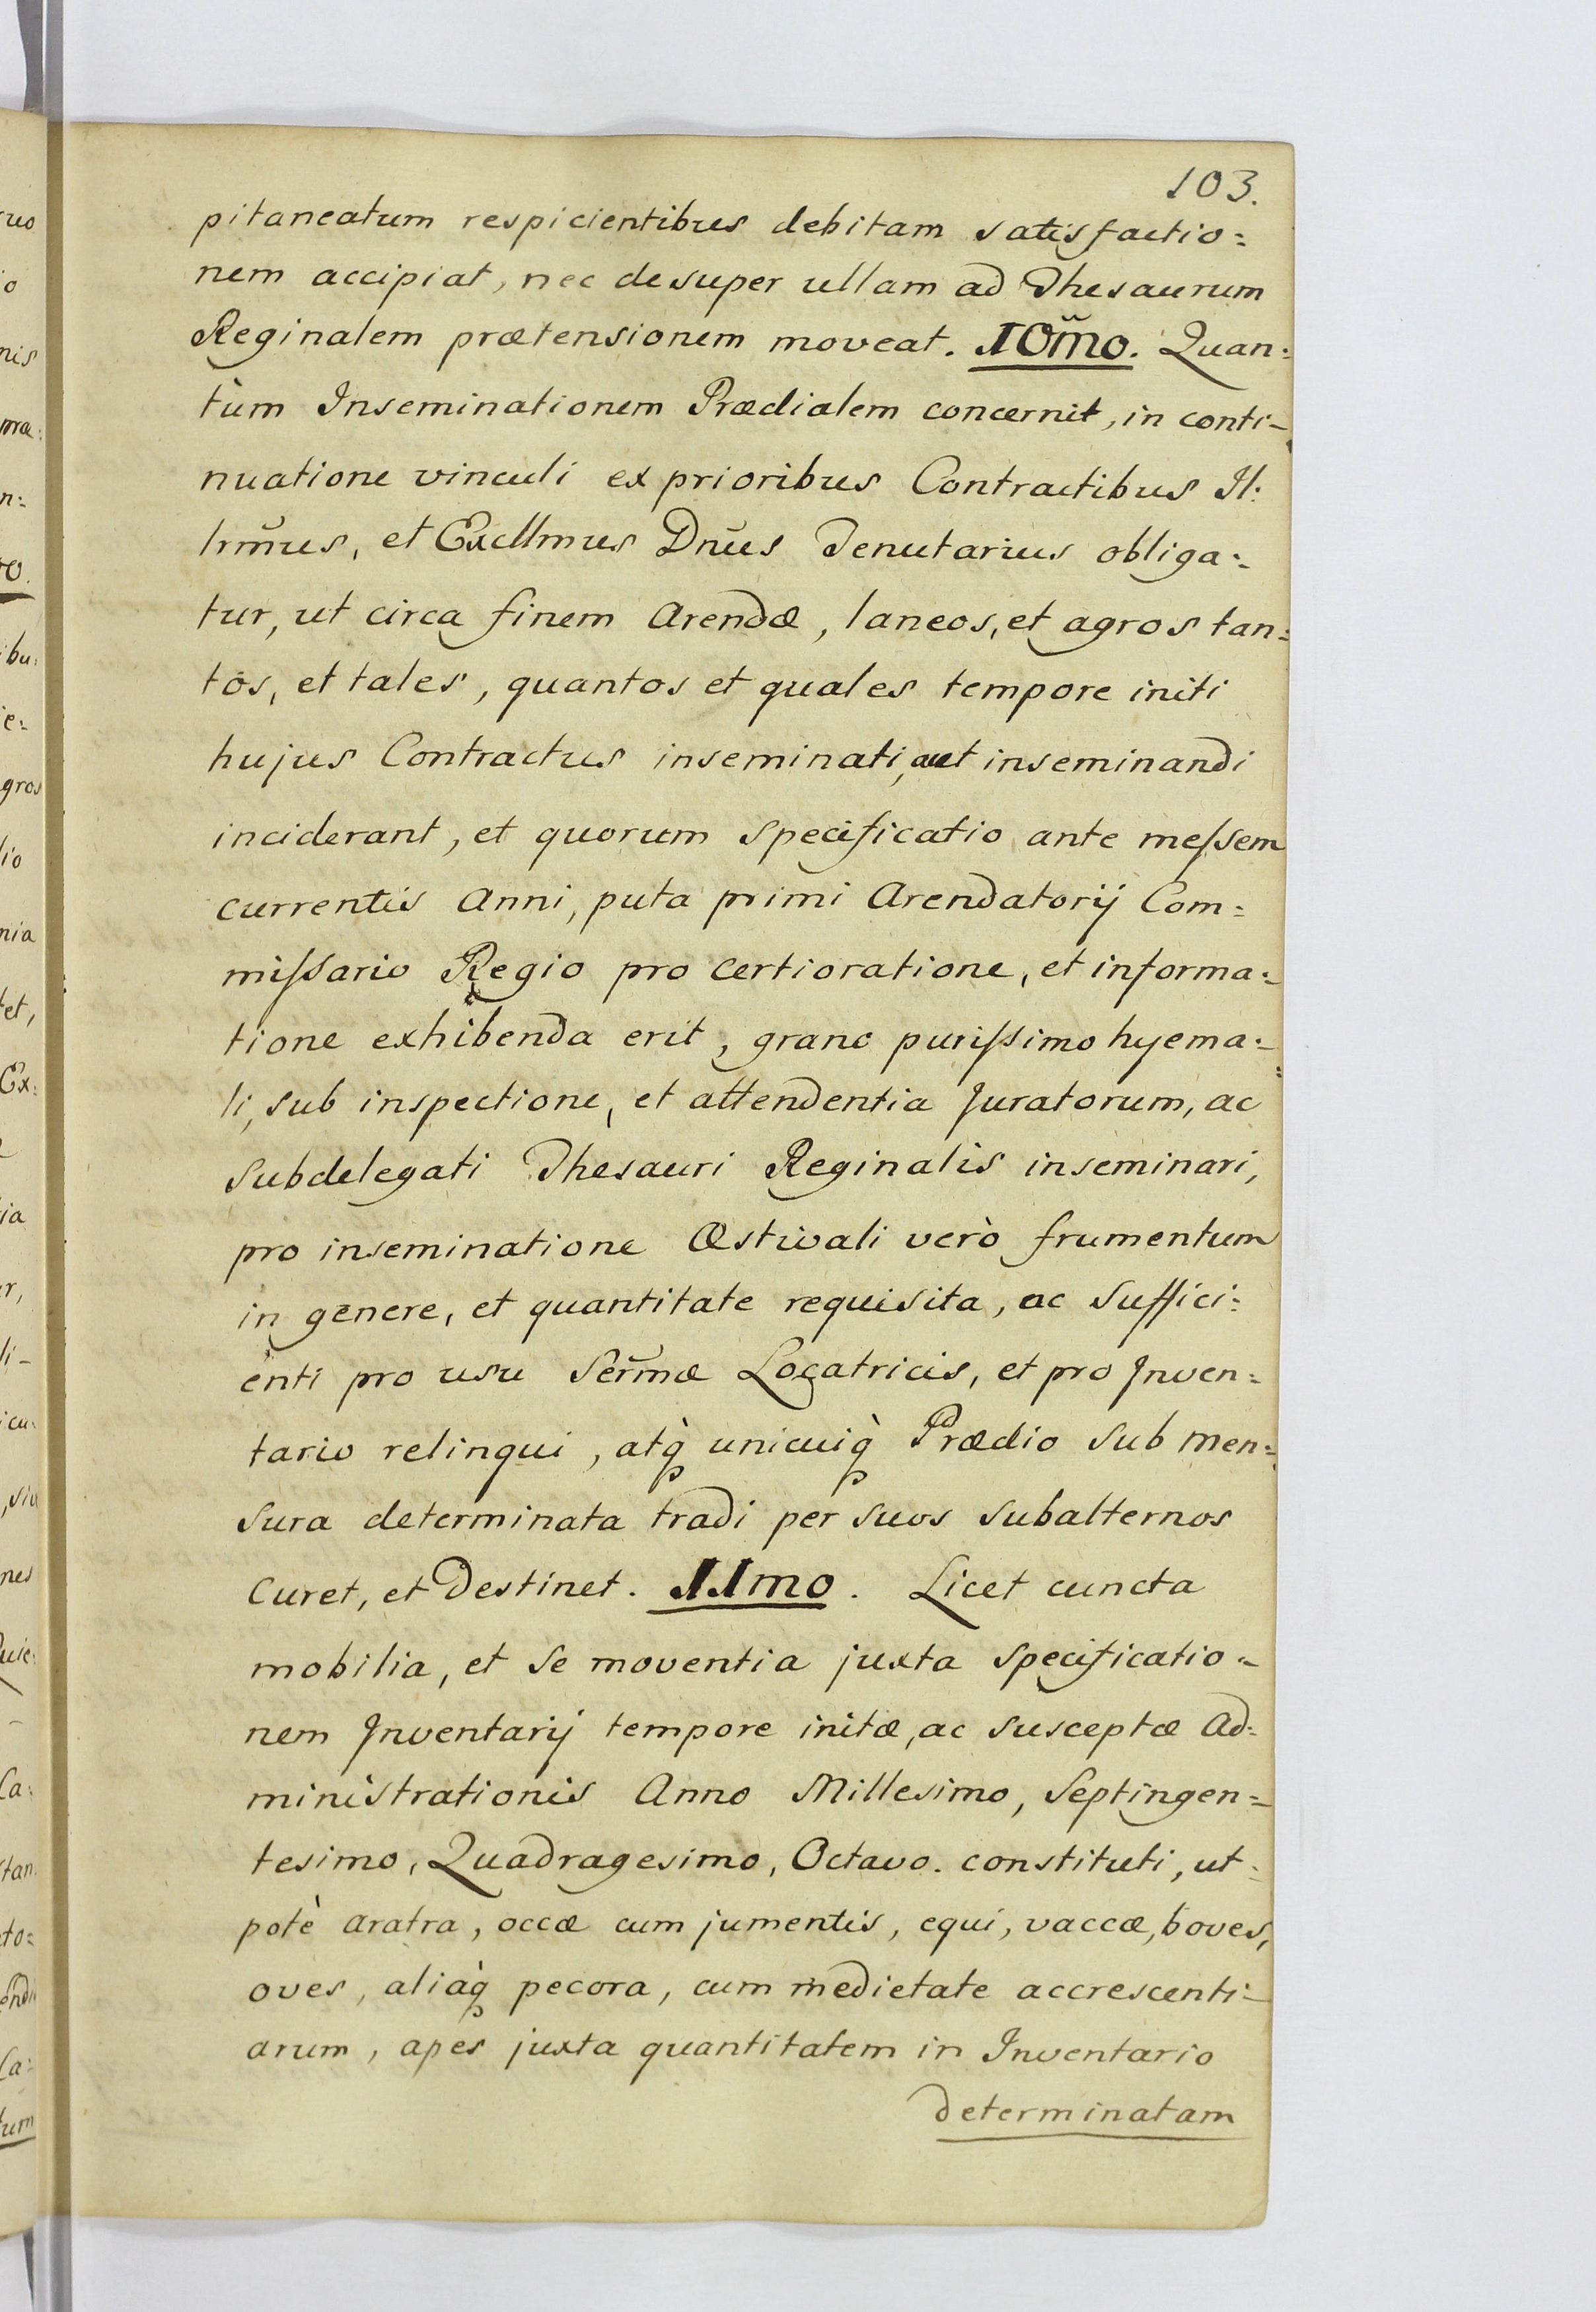 103.
pitaneatum respicientibus debitam satisfactio=
nem accipiat, nec desuper ullam ad Thesaurum
Reginalem prætensionem moveat. 10m̃o. Quan=
tùm Inseminationem Prædialem concernit, in conti-
nuatione vinculi ex prioribus Contractibus Il:
lrm̃us, et Excllmus Dñus Tenutarius obliga=
tur, ut circa finem Arendæ, laneos, et agros tan=
tos, et tales, quantos et quales tempore initi
hujus Contractus inseminati, aut inseminandi
inciderant, et quorum specificatio ante meſsem
currentis Anni, puta primi Arendatorij Com=
miſsario Regio pro certioratione, et informa=
tione exhibenda erit, grano puriſsimo hyema=
li, sub inspectione, et attendentia Juratorum, ac
Subdelegati Thesauri Reginalis inseminari,
pro inseminatione Æstivali verò frumentum
in genere, et quantitate requisita, ac suffici=
enti pro usu Serm̃æ Locatricis, et pro Inven=
tario relinqui, atq̀ unicuiq̀ Prædio sub men=
sura determinata tradi per suos subalternos
Curet, et Destinet. 11mo. Licet cuncta
mobilia, et se moventia juxta specificatio=
nem Inventarij tempore initæ, ac susceptæ Ad=
ministrationis Anno Millesimo, Septingen=
tesimo, Quadragesimo, Octavo. constituti, ut=
potè aratra, occæ cum jumentis, equi, vaccæ, boves,
oves, aliaq̀ pecora, cum medietate accrescenti=
arum, apes juxta quantitatem in Inventario
determinatam